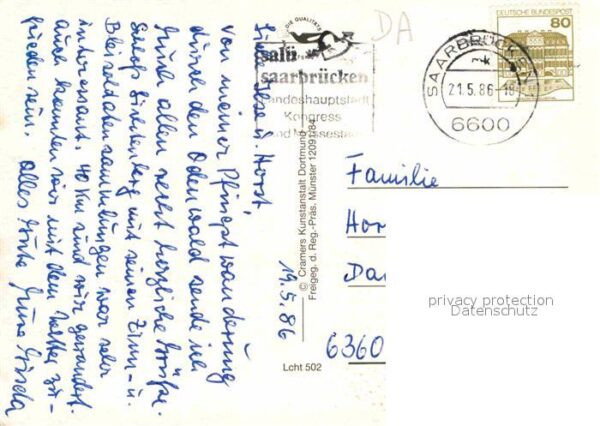 Liebe Ilse u. Horst,
von meiner Pfingstwanderung
durch den Odenwald sende ich
Euch allen recht herzliche Grüße.
Schloß Lichtenberg mit seinen Zinn- u.
Bleisoldatensammlungen war sehr
interessant. 40 Km sind wir gewandert.
Auch konnten wir mit dem Wetter zu-
frieden sein. Alles Gute Eure Gisela
19.5.86
© Cramers Kunstanstalt Dortmund
Freigeg. d. Reg.-Präs. Münster 12091/84
Lcht 502
DIE QUALITÄTS
salü
saarbrücken
Landeshauptstadt
Kongress
und Messestadt
DA
DEUTSCHE BUNDESPOST
80
SAARBRÜCKEN
mk
21.5.86-18
6600
Familie
Hor
Da
6360
privacy protection
Datenschutz